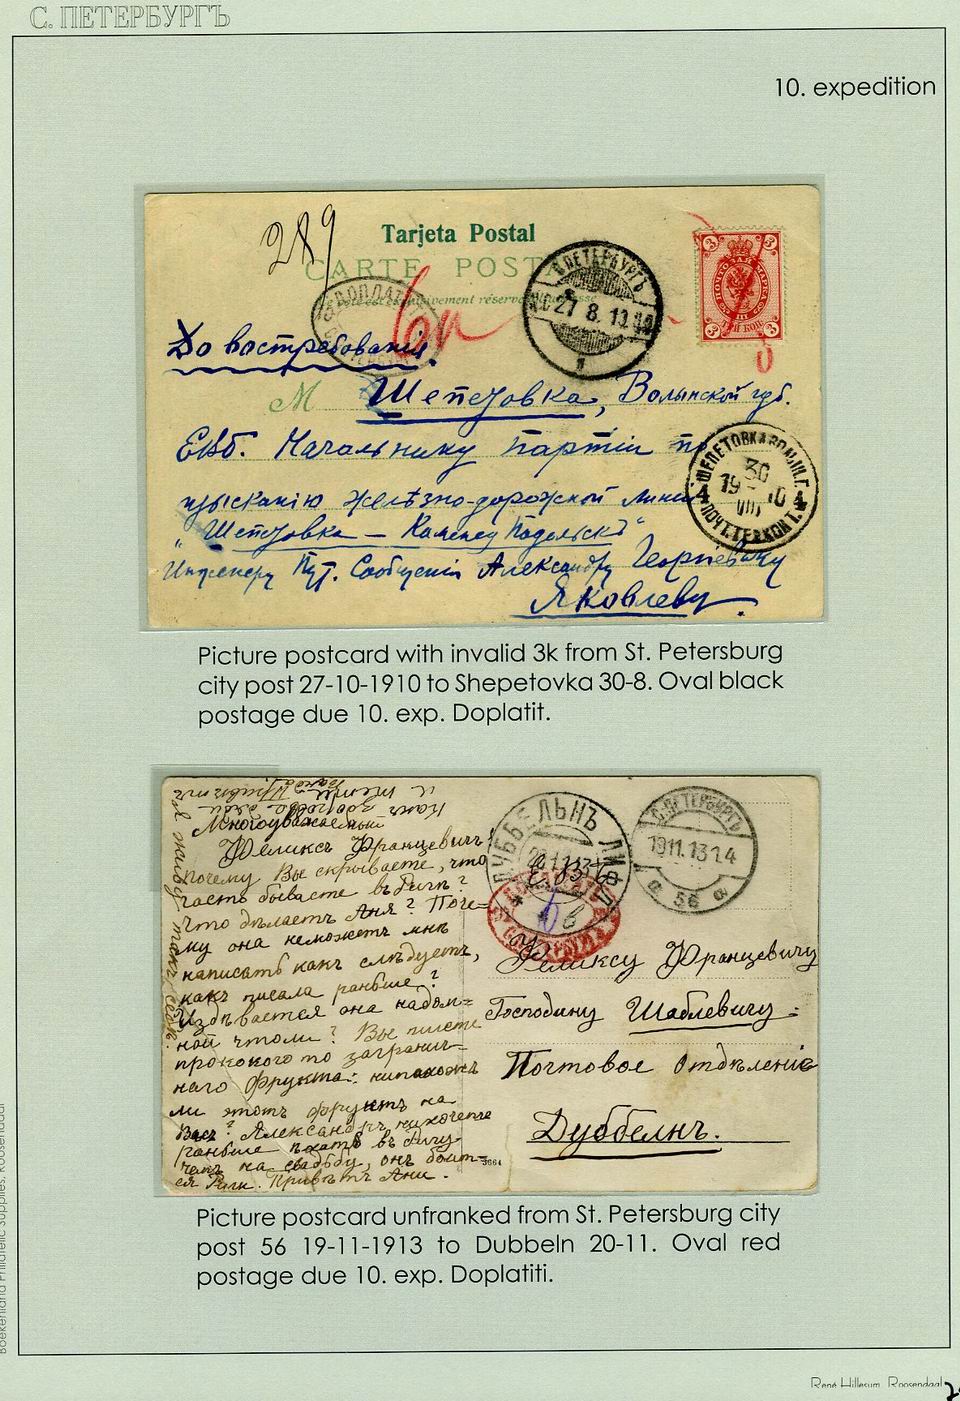 С. ПЕТЕРБУРГЪ
10. expedition
289
Tarjeta Postal
CARTE POST
ДОПЛАТИТЬ
С.ПЕТЕРБУРГЪ
27 8.10
3 3
ПОЧТОВАЯ МАРКА
ТРИ КОП.
3 3
До востребованія.
М Шепетовка, Волынской губ.
ЕВб. Начальнику партіи по
изысканію желѣзно-дорожной линіи
"Шепетовка — Каменец Подольскъ"
Инженеру Пут. Сообщенія Александру Георгіевичу
Яковлеву.
ШЕПЕТОВКА ВОЛЫН. Г.
30
19 10
VIII
4 4
ПОЧТ. ТЕЛ. КОН.
Picture postcard with invalid 3k from St. Petersburg
city post 27-10-1910 to Shepetovka 30-8. Oval black
postage due 10. exp. Doplatit.
Многоуважаемый
Феликсъ Францевичъ!
почему Вы скрываете, что
часто бываете въ Ригѣ?
Что дѣлаетъ Аня? Поче-
му она неможетъ мнѣ
написать какъ слѣдуетъ,
какъ писала раньше?
Издѣвается она надом-
ной чтоли? Вы пишете
прококого то загранич-
наго Фрукта: нипохожъ
ли этотъ фруктъ на
Васъ? Александръ нихочетъ
раньше ѣхать въ Ригу
чемъ на свадьбу, онъ боит-
ся Риги. Привѣтъ Ани.
3664
ДУББЕЛЬНЪ ЛИФЛ
20.11.13
С.ПЕТЕРБУРГЪ
19 11.13 1.4
а 56 а
Феликсу Францевичу
Господину Шаблевичу:
Почтовое Отдѣленіе
Дуббелнъ.
Picture postcard unfranked from St. Petersburg city
post 56 19-11-1913 to Dubbeln 20-11. Oval red
postage due 10. exp. Doplatiti.
Boekenland Philatelic Supplies, Roosendaal
René Hillesum, Roosendaal